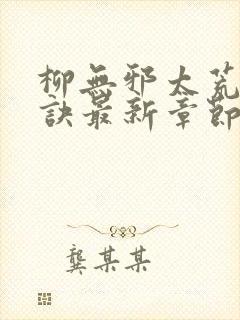 柳無邪太荒
訣最新章節
龔某某